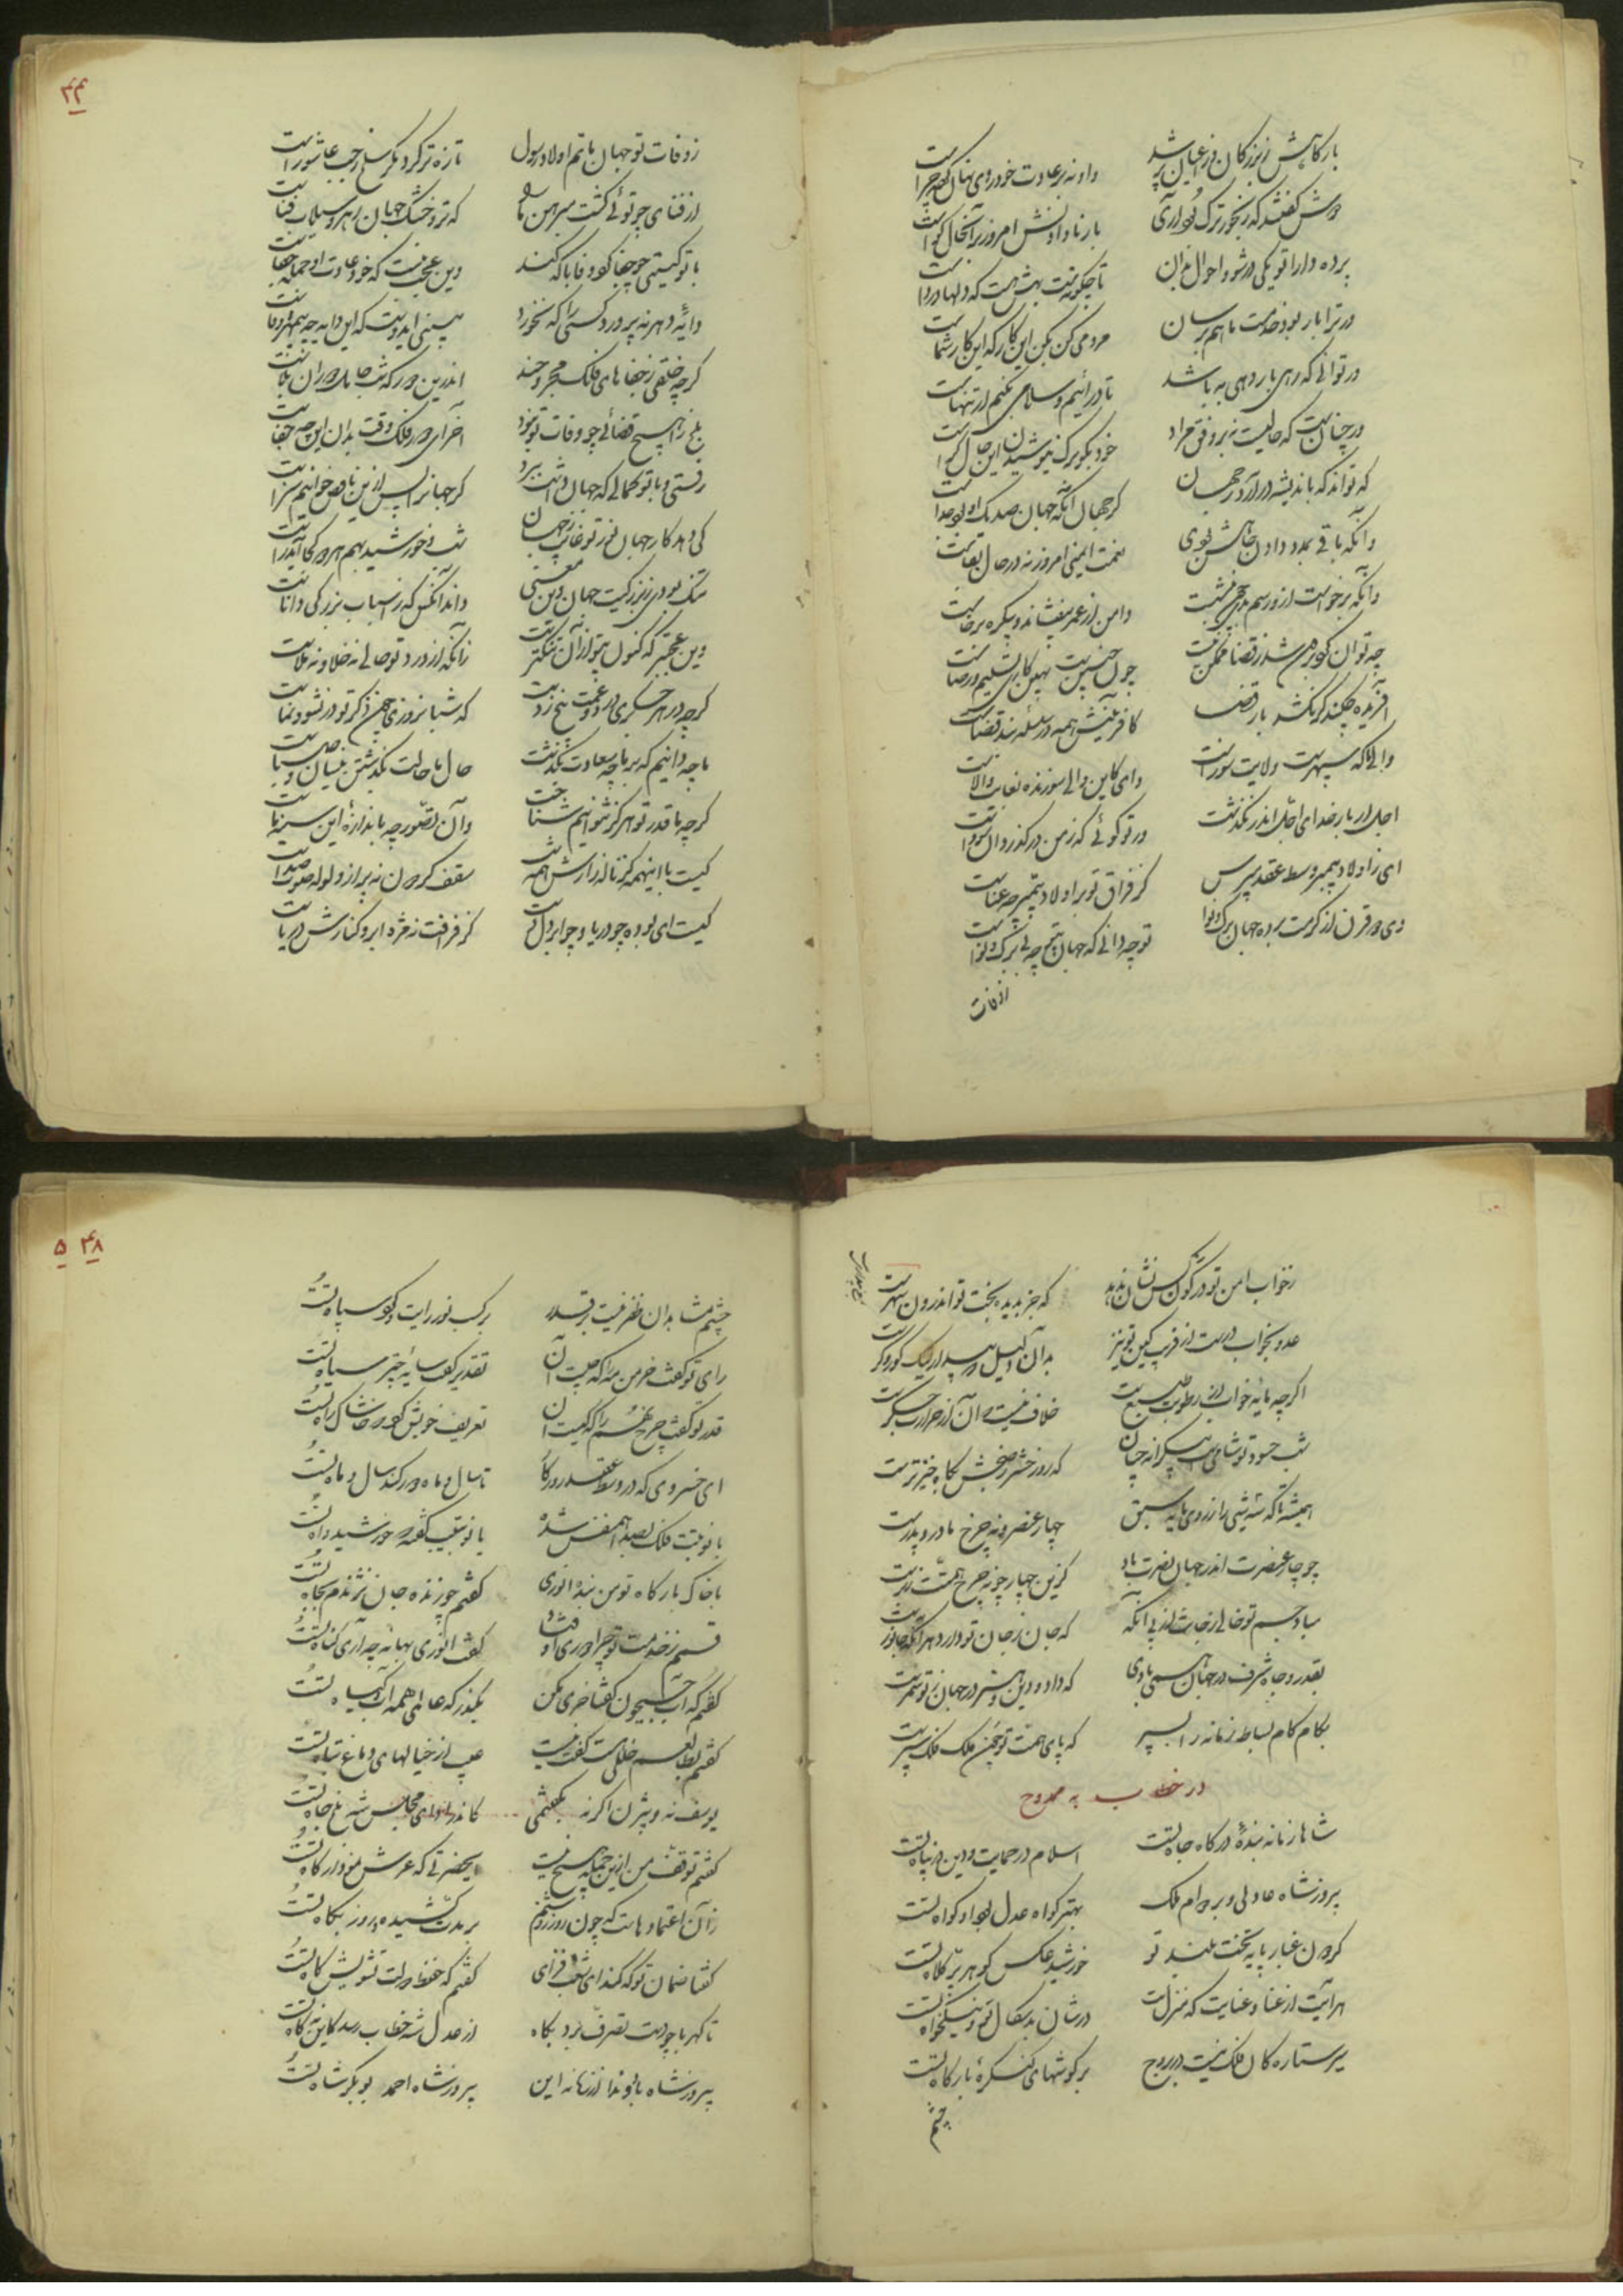 بارگاهش ز بزرگان و ز اعیان پر شد
او نه بر عادت خود روی نهان کرده چراست
دوش گفتند که رنجورترک بود آری
بار نادادنش امروز بر آنحال گواست
پرده دارا تو یکی در شو و احوال بدان
تا چگونه است بهش هست که دلها درواست
ور ترا بار بود خدمت ما هم برسان
مردمی کن بکن این کار که این کار شماست
ور توانی که رهی بار دهی به باشد
تا درآئیم و سلامی بکنیم ار تنهاست
ور چنانست که حالیست نه بر وفق مراد
خود بگو برگ نیوشیدن این حال کراست
که تواند که باندیشه درآرد بجهان
کز جهان آنکه جهان صد یک او بود جداست
وآنکه باقی بمدد دادن جاهش بودی
نعمت ایمنی امروز نه در حال بقاست
وآنکه برخاست ازو رسم بدی چون بنشست
دامن از عمر بیفشاند و بیکره برخاست
چه توان کرد برون شد ز قضا ممکن نیست
چون چنین است بهین کاری تسلیم و رضاست
آفریده چکند گر نکشد بار قضا
کافرینش همه در سلسله بند قضاست
والیی که سپهر است ولایت سوز است
وای کاین والی سوزنده بغایت والاست
اجل از بار خدای اجل اندر نگذشت
ور تو گوئی که ز من درگذرد آن سوداست
ای ز اولاد پیمبر وسط عقد مپرس
کز فراق تو بر اولاد پیمبر چه عناست
وی دو قرن از کرمت برده جهان برگ و نوا
تو چه دانی که جهان بیتو چه بی برگ و نواست
از وفات
۴۴
ز وفات تو جهان ماتم اولاد رسول
تازه تر کرد مگر سلخ رجب عاشوراست
از فنای چو توئی گشت مبرهن ما را
که تر و خشک جهان رهرو سیلاب فناست
با تو گیتی چو جفا کرد وفا با که کند
وین عجب نیست که خود عادت او جمله جفاست
دایهٔ دهر نپرورد کسی را که نخورد
بینی ای دوست که این دایه چه بیمهر و وفاست
گرچه خلقی ز جفاهای فلک مجروحند
اندرین دور که شب حامل دوران بلاست
بلخ را هیچ قضائی چو وفات تو نبود
آخر ای دور فلک وقت بدان این چه جفاست
رفتی و با تو کمالی که جهان داشت ببرد
گر جهان را پس ازین ناقص خوانیم سزاست
کی دهد کار جهان نور تو غایب ز جهان
شب و خورشید بهم هر دو کجا آید راست
تنگ بودی ز بزرگیت جهان وین معنی
داند آنکس که ز اسباب بزرگی داناست
وین عجبتر که کنون بیتو از آن تنگتر است
زانکه از درد تو حالی نه خلا و نه ملاست
گرچه در هر جگری درد و غمت بیخ زدست
که شبانروزی چون ذکر تو در نشو و نماست
ما چه دانیم که بر ما چه سعادت بگذشت
حال ما حالت بگذشتن بیسان و صباست
گرچه ما قدر تو هرگز نتوانیم شناخت
وآن تصور چه باندازهٔ این سینهٔ ماست
کیست با اینهمه کز ناله زارش همه شب
سقف گردون نه پر از ولوله صوت و صداست
کیست ای بوده چو دریا و چو ابر دل و دست
کز فراقت نه مژه ابر و کنارش دریاست
ز خواب امن تو در کون کس نشان ندهد
که جز بدیده بخت تو اندرون سهر است
عدو بخواب درست از فریب کین تو نیز
بدان دلیل
اگرچه مایه خواب از رطوبت طبع است
خلاف نیست که آن از حرارت جگر است
شب حسود تو شامیست بیکرانه چنان
که روز حشر ز صبحش پگاه خیزتر است
همیشه تا که شش را ز روی مایه سبق
چهار عنصر و نه چرخ مادر و پدر است
چو چار عنصرت اندر جهان تصرف باد
کزین چهار چو نه چرخ همتت زبر است
مباد جسم تو خالی ز جان از پی آنکه
که جان ز جان تو دارد هر آنکه جانور است
بقدر و جاه و شرف در جهان سمر بادی
که داد و دین و هنر در جهان ز تو سمر است
بکام کام بساط زمانه را بسپر
که پای همت تو چون ملک فلک سپر است
در خطاب به ممدوح
شاها زمانه بندهٔ درگاه جاه تست
اسلام در حمایت و دین در پناه تست
پیروزشاه عادلی و بر دوام ملک
بهتر گواه عدل بود او گواه تست
گردون غبار پایه تخت بلند تو
خورشید عکس گوهر پر کلاه تست
هر آیت از عنا و عنایت که منزلست
در شان بدسگال تو و نیکخواه تست
سیر ستارگان فلک نیست در بروج
بر گوشهای کنگرهٔ بارگاه تست
چشم
۴۸ ۵
چشم مسامدان ظفر نیست بر قدر
بر گسب نور رایت و کوی سپاه تست
رای تو گفت خرمن مه را که چیست آن
تقدیر گفت سایهٔ چتر سیاه تست
قدر تو گفت چرخ نهم را که کیست آن
تعریف خویش کرد که خاشاک راه تست
ای خسروی که در وسط عقد روزگار
تا سال و ماه دور کند سال و ماه تست
با نوبتت فلک بصدا همنفس شده
با نوبتیت گفته که خورشید داه تست
با خاک بارگاه تو من بنده انوری
گفتم چو زنده جان نژندم بجاه تست
قسمم ز خدمت تو چرا دوری اوفتاد
گفت انوری بهانه چه آری گناه تست
گفتم که آب جیحون گفتا خری مکن
بگذر که عالمی همه آب و گیاه تست
گفتم بطالعم خللی هست گفت نیست
عیب از خیالهای دماغ تباه تست
یوسف نه و بیژن اگرنه بگفتمی
کاندر ازای مجلس شه بلخ چاه تست
گفتم توقف من ازین جمله هیچ نیست
ای حضرتی که عرش نمودار گاه تست
زان اعتماد هاست که چون روز روشنم
بر مدت کشیده و روز پگاه تست
گفتا ضمان تو که کند ای شب فزای
گفتم که حفظ دولت تشویش کاه تست
تا کهربا چو دست تصرف برد بکاه
از عدل شه خطاب رسد کاین نه کاه تست
پیروزشاه باد و ندا از زمانه این
پیروزشاه احمد بوبکر شاه تست